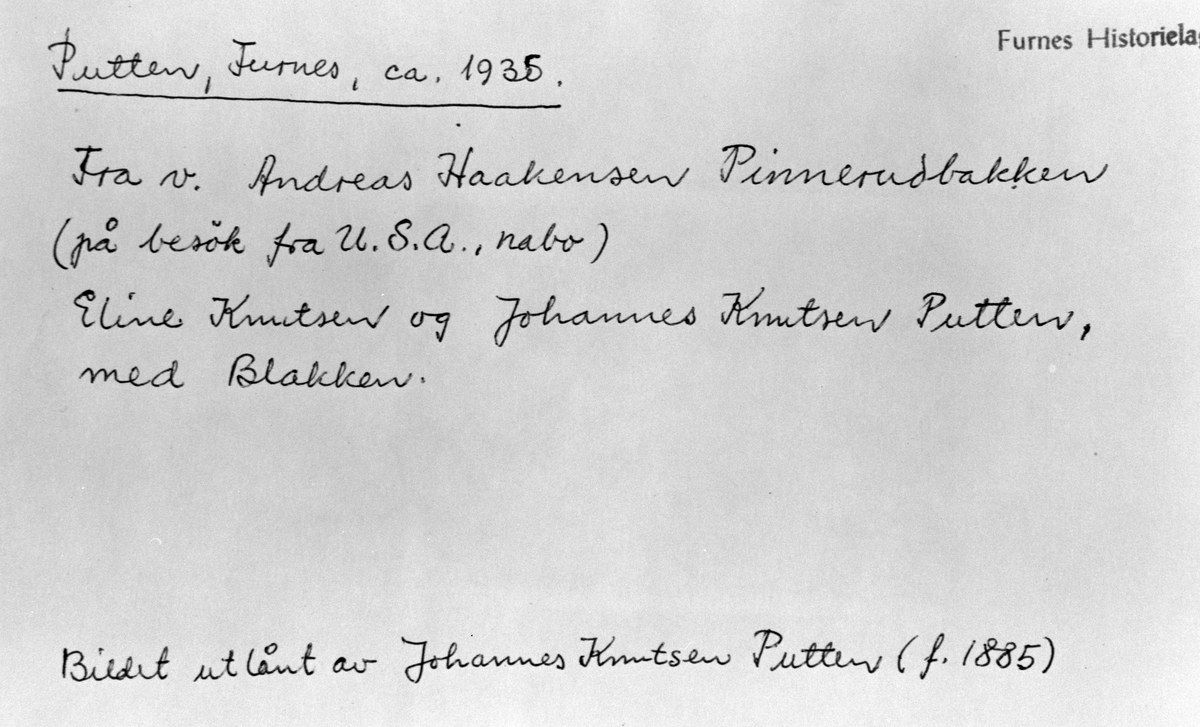 Furnes Historiela
Putten, Furnes, ca. 1935.
Fra v. Andreas Haakensen Pinnerudbakken
(på besök fra U.S.A., nabo)
Eline Knutsen og Johannes Knutsen Putten,
med Blakken.
Bildet utlånt av Johannes Knutsen Putten (f. 1885)